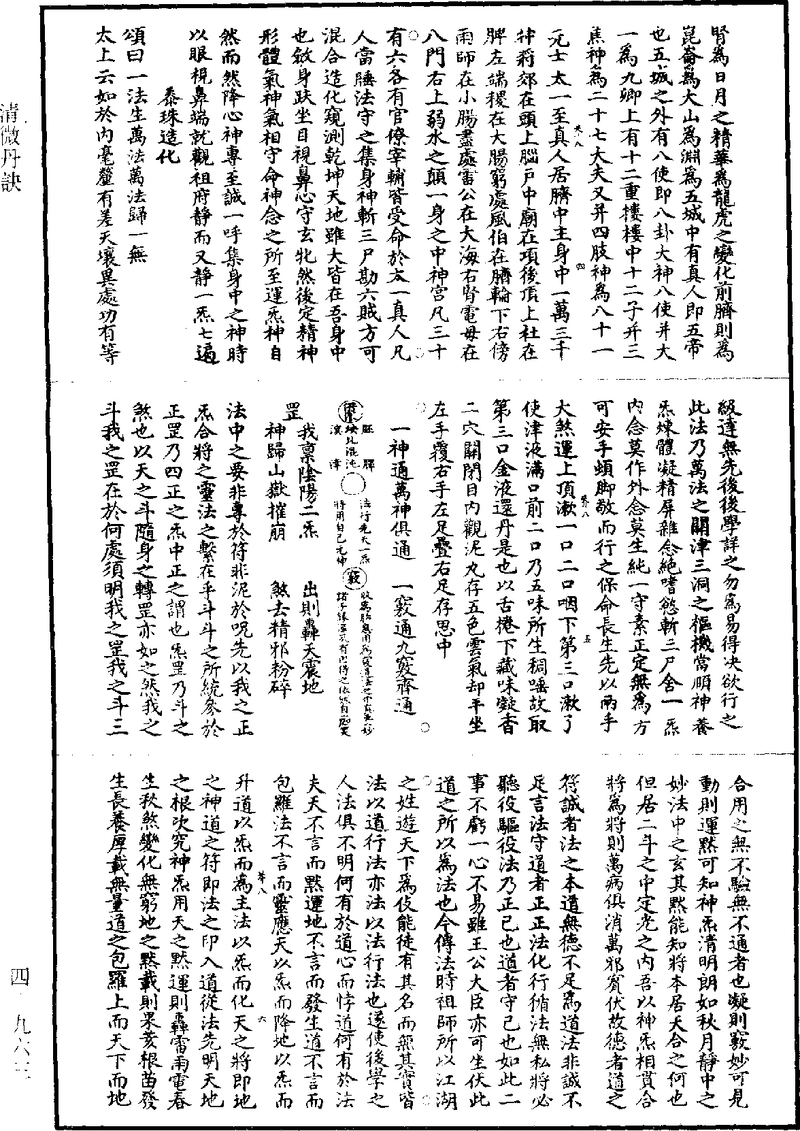 清微丹訣
腎為日月之精華為龍虎之變化前臍則為
崑崙為大山為淵為五城中有真人即五帝
也五城之外有八使即八卦大神八使并大
一為九卿上有十二重樓樓中十二子并三
焦神為二十七大夫又并四肢神為八十一
元士太一至真人居臍中主身中一萬三千
神府郊在頭上腦戶中廟在項後頂上社在
脾左端稷在大腸窮處風伯在臍輪下右傍
雨師在小腸盡處雷公在大海右腎電母在
八門右上弱水之顛一身之中神宮凡三十
有六各有官僚宰輔皆受命於太一真人凡
人當歷法守之集身神斬三尸勘六賊方可
混合造化窺測乾坤天地雖大皆在吾身中
也斂身趺坐目視鼻心守玄牝然後定精神
形體氣神氣相守命神念之所至運炁神自
然而然降心神專至誠一呼集身中之神時
以眼視鼻端就觀祖府靜而又靜一炁七遍
泰珠造化
頌曰一法生萬法萬法歸一無
太上云如於內毫釐有差天壤異處功有等
級達無先後後學詳之勿為易得決欲行之
此法乃萬法之關津三洞之樞機當順神養
炁煉體凝精屏雜念絕嗜慾斬三尸舍一炁
內念莫作外念莫生純一守素正定無為方
可安手蝢脚敬而行之保命長生先以兩手
大煞運上頂漱一口二口咽下第三口漱了
使津液滿口前二口乃五味所生稠嗌故取
第三口金液還丹是也以舌捲下藏味凝香
二穴關閉目內觀泥丸存五色雲氣却平坐
左手覆右手左足疊右足存思中
一神通萬神俱通　一竅通九竅齊通
竅
我稟陰陽二炁　出則轟天震地
罡
神歸山嶽摧崩　煞去精邪粉碎
法中之要非專於符非泥於呪先以我之正
炁合將之靈法之繫在乎斗斗之所統參於
正罡乃四正之炁中正之謂也炁罡乃斗之
煞也以天之斗隨身之轉罡亦如之然我之
斗我之罡在於何處須明我之罡我之斗三
合用之無不驗無不通者也凝則竅妙可見
動則運默可知神炁清明朗如秋月靜中之
妙法中之玄其默能知將本居天合之何也
但居二斗之中定光之內吾以神炁相貫合
將為將則萬病俱消萬邪賓伏故德者道之
符誠者法之本道無德不足為道法非誠不
足言法守道者正正法化行稍法無私將必
聽役驅役法乃正已也道者守己也如此二
事不虧一心不易雖王公大臣亦可生伏此
道之所以為法也今傳法時祖師所以江湖
之姓遊天下為伎能徒有其名而無其實皆
法以道行法亦法以法行法也遂使後學之
人法俱不明何有於道心而悖道何有於法
夫天不言而默運地不言而發生道不言而
包羅法不言而靈應天以炁而降地以炁而
升道以炁而為主法以炁而化天之將即地
之神道之符即法之印入道從法先明天地
之根次究神炁用天之默運則轟雷雨電春
生秋煞變化無窮地之默載則果荄根苗發
生長養厚載無量道之包羅上而天下而地
四·九六三